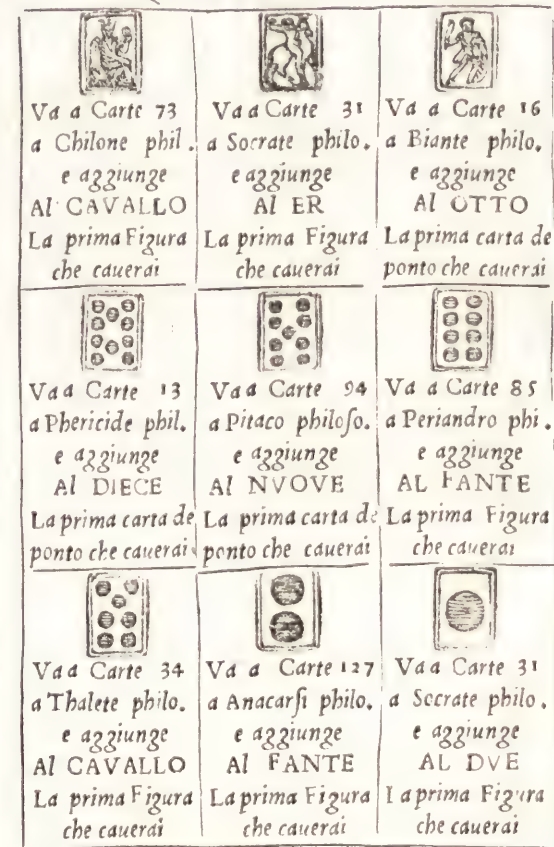 Va a Carte 73
a Chilone phil.
e aggiunge
Al CAVALLO
La prima Figura
che cauerai
Va a Carte 31
a Socrate philo.
e aggiunge
Al ER
La prima Figura
che cauerai
Va a Carte 16
a Biante philo.
e aggiunge
Al OTTO
La prima carta de
ponto che cauerai
Va a Carte 13
a Phericide phil.
e aggiunge
Al DIECE
La prima carta de
ponto che cauerai
Va a Carte 94
a Pitaco philoſo.
e aggiunge
Al NVOVE
La prima carta de
ponto che cauerai
Va a Carte 85
a Periandro phi.
e aggiunge
AL FANTE
La prima Figura
che cauerai
Va a Carte 34
a Thalete philo.
e aggiunge
Al CAVALLO
La prima Figura
che cauerai
Va a Carte 127
a Anacarſi philo.
e aggiunge
Al FANTE
La prima Figura
che cauerai
Va a Carte 31
a Socrate philo.
e aggiunge
AL DVE
La prima Figura
che cauerai